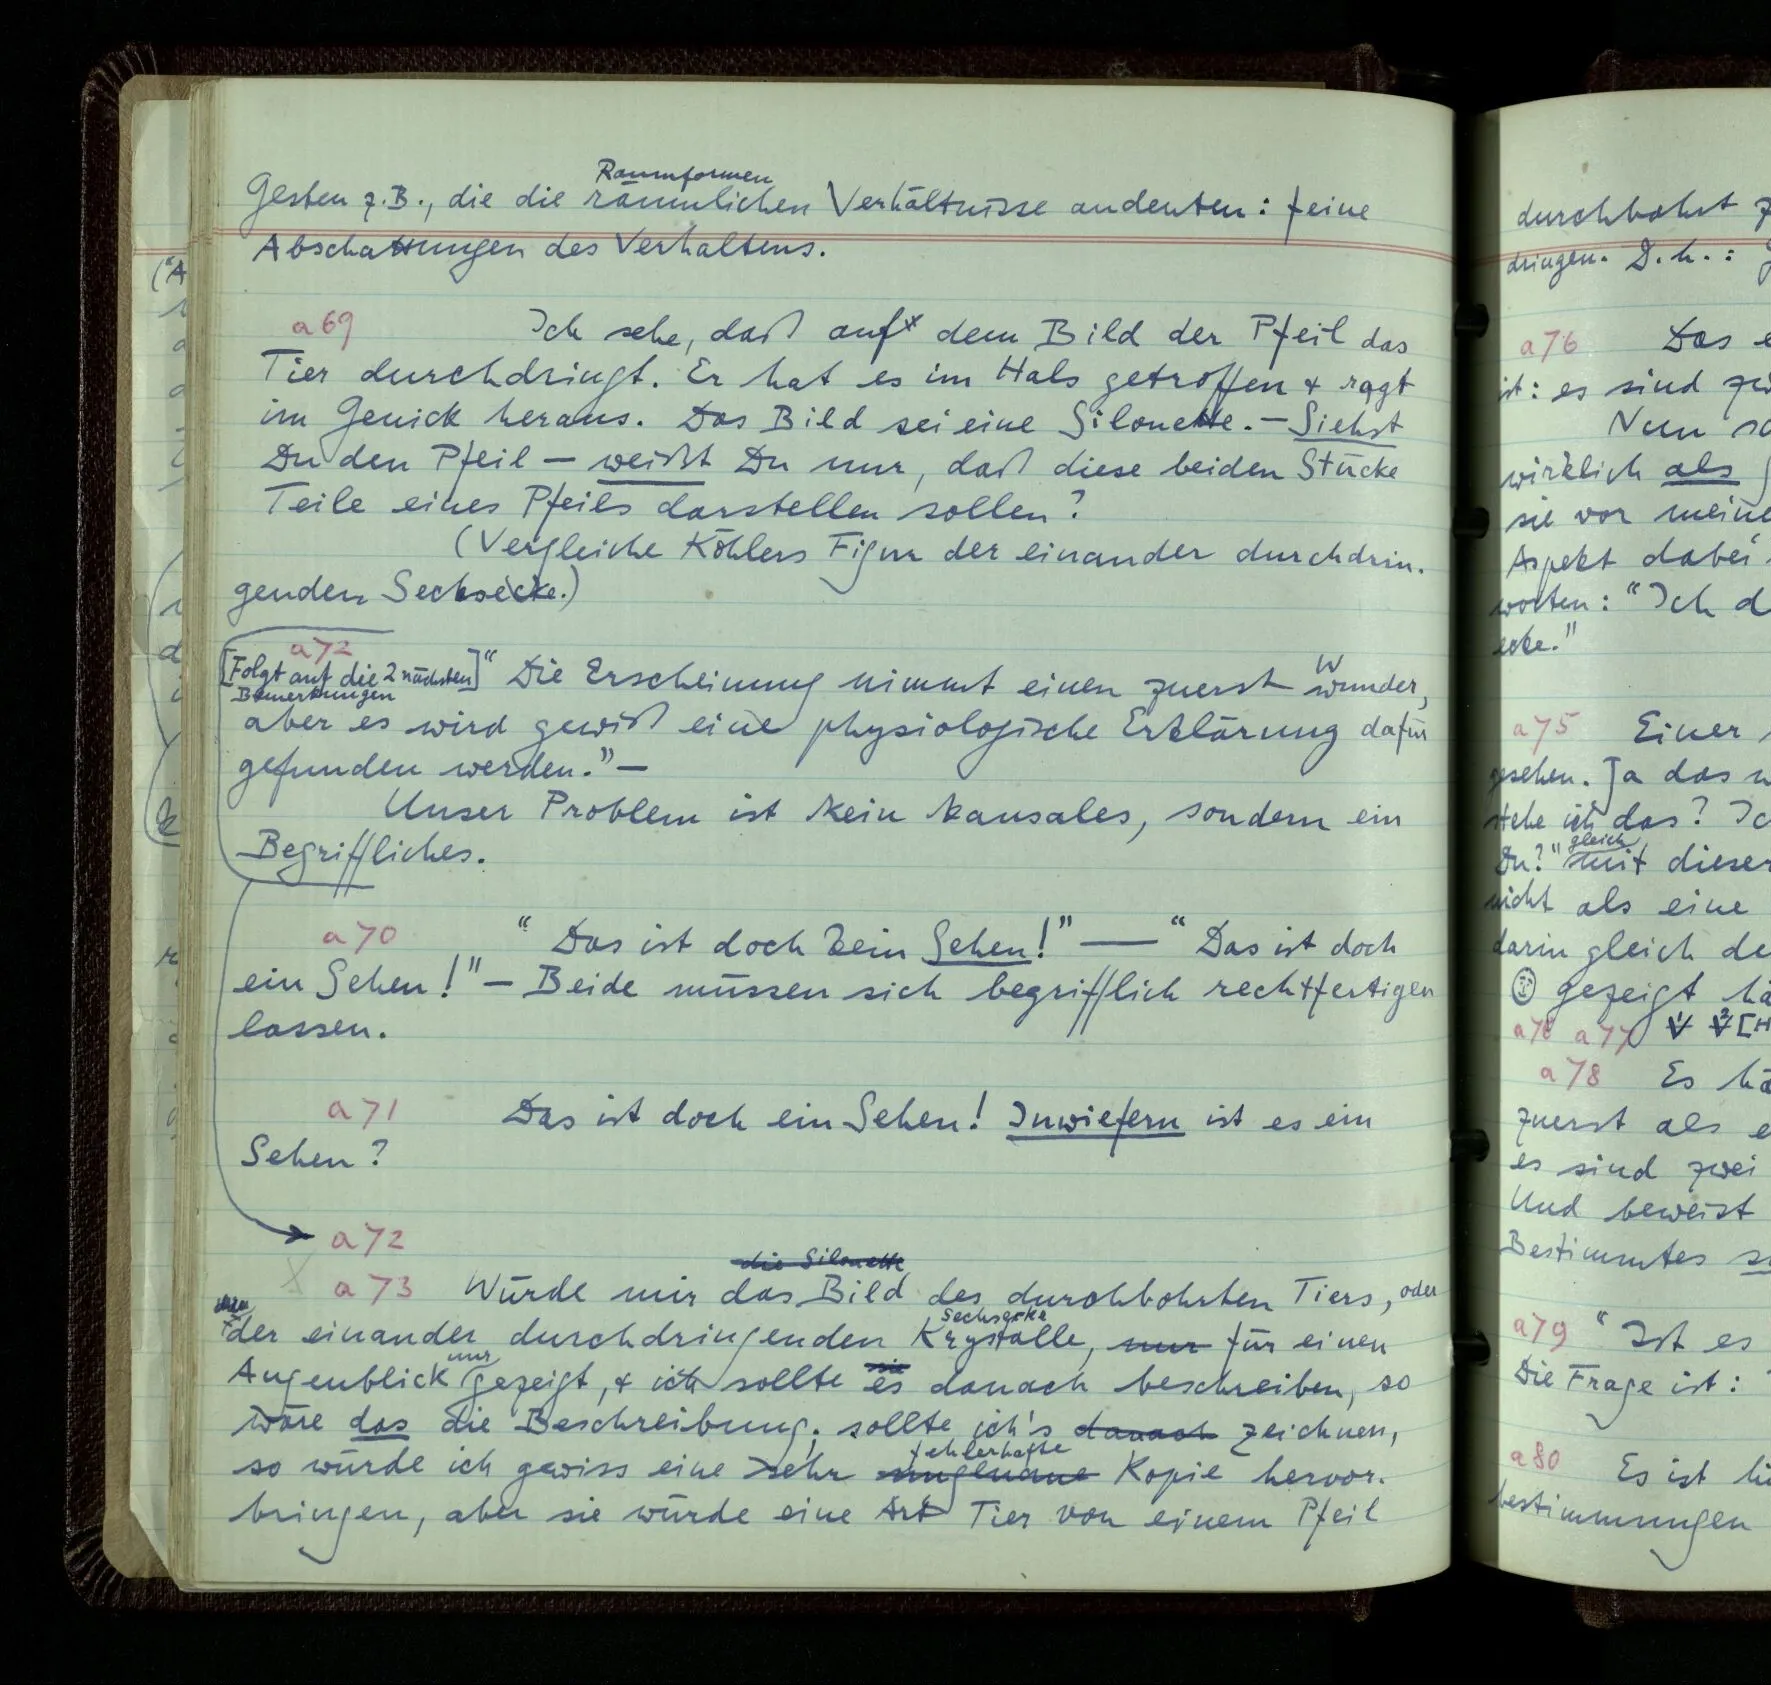 Raumformen
Gesten z.B., die die räumlichen Verhältnisse andeuten: feine
Abschattungen des Verhaltens.
a69 Ich sehe, daß auf dem Bild der Pfeil das
Tier durchdringt. Er hat es im Hals getroffen & ragt
im Genick heraus. Das Bild sei eine Silouette. – Siehst
Du den Pfeil – weißt Du nur, daß diese beiden Stücke
Teile eines Pfeils darstellen sollen?
(Vergleiche Köhlers Figur der einander durchdrin-
genden Sechsecke.)
a72
[Folgt auf die 2 nächsten] “Die Erscheinung nimmt einen zuerst wunder,
W
Bemerkungen
aber es wird gewiß eine physiologische Erklärung dafür
gefunden werden.” –
Unser Problem ist kein kausales, sondern ein
Begriffliches.
a70 “Das ist doch kein Sehen!” — “Das ist doch
ein Sehen!” – Beide müssen sich begrifflich rechtfertigen
lassen.
a71 Das ist doch ein Sehen! Inwiefern ist es ein
Sehen?
a72
die Silouette
a73 Würde mir das Bild des durchbohrten Tiers, oder
Sechsecke
der einander durchdringenden Krystalle, nur für einen
nur
sie
Augenblick gezeigt, & ich sollte es danach beschreiben, so
wäre das die Beschreibung; sollte ich's danach zeichnen,
fehlerhafte
so würde ich gewiss eine sehr ungenaue Kopie hervor-
bringen, aber sie würde eine Art Tier von einem Pfeil
durchbohrt
dringen. D.h.:
a76 Das
ist: es sind
Nun
wirklich als
sie vor meine
Aspekt dabei
worten: “Ich
ecke.”
a75 Einer
gesehen. Ja das
stehe ich das?
gleich
Du?” mit dieser
nicht als eine
darin gleich
gezeigt
a76 a77
a78 Es
zuerst als
es sind zwei
Und beweist
Bestimmtes
a79 “Ist es
Die Frage ist:
a80 Es ist
bestimmungen